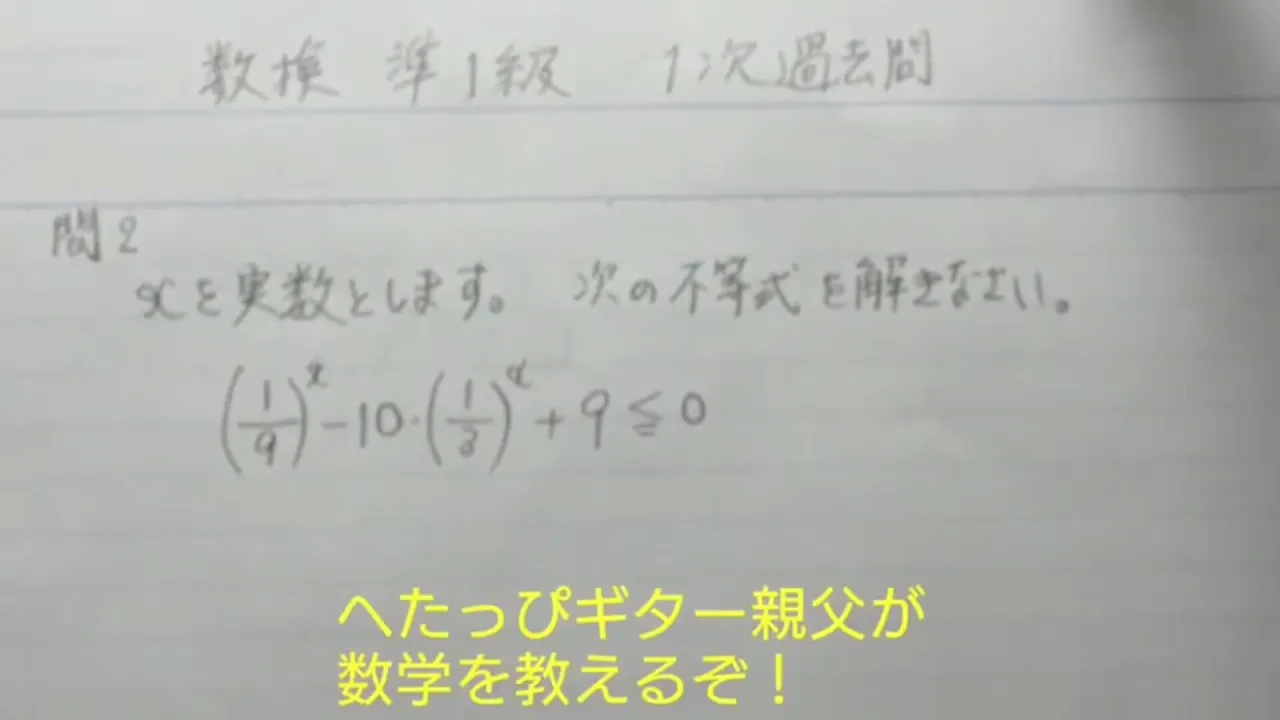 数検 準1級 1次過去問
問2
xを実数とします。 次の不等式を解きなさい。
(1/9)^x - 10・(1/3)^x + 9 ≦ 0
へたっぴギター親父が
数学を教えるぞ！